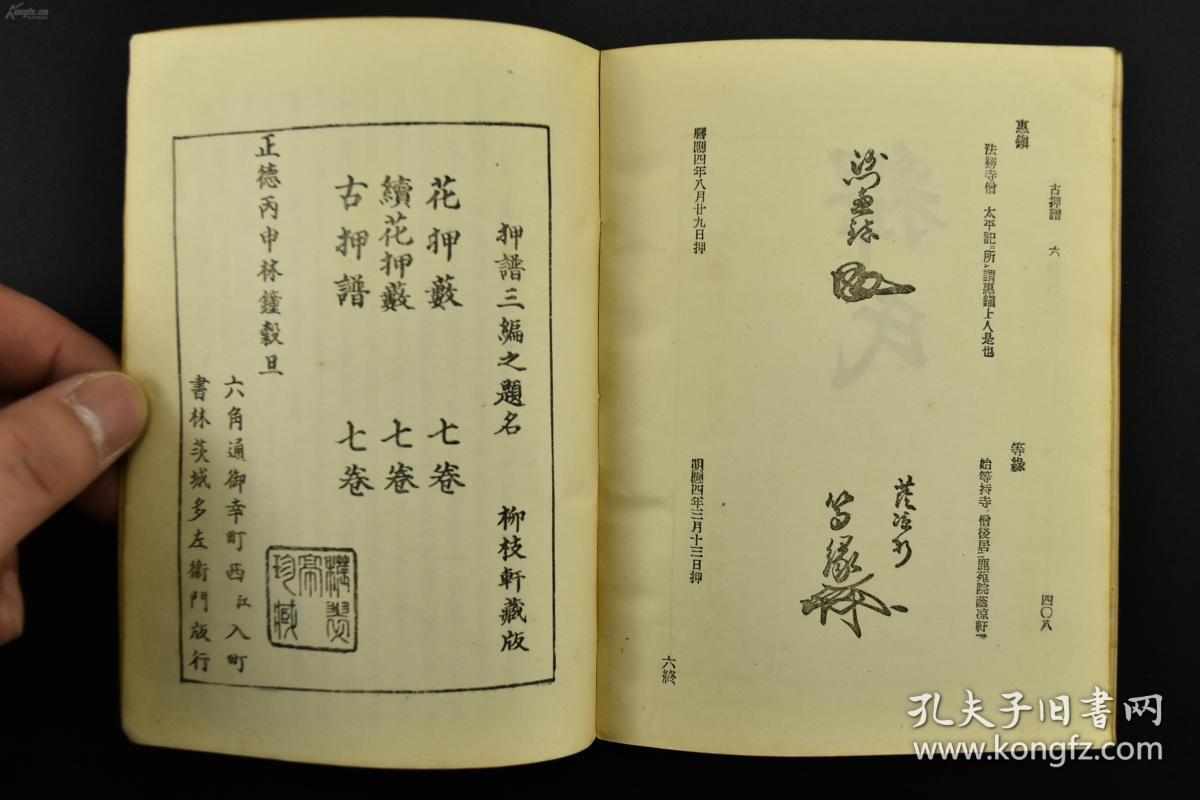 古押譜 六
四〇八
惠鎭
法勝寺僧 太平記ニ所ノ謂惠鎭上人是也
曆應四年八月廿九日押
等緣
始等持寺ノ僧後居ニ鹿苑院蔭凉軒ニ
蔭凉軒
等緣
明應四年三月十三日押
六終
押譜三編之題名 柳枝軒藏版
花押藪 七卷
續花押藪 七卷
古押譜 七卷
正德丙申林鐘穀旦
六角通御幸町西江入町
書林茨城多左衞門版行
珍藏
孔夫子旧书网
www.kongfz.com
Kongfz.cn